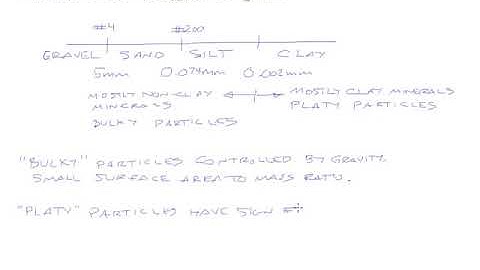 #4 #200
GRAVEL SAND SILT CLAY
5mm 0.074mm 0.002mm
MOSTLY NON CLAY MOSTLY CLAY MINERALS
MINERALS PLATY PARTICLES
BULKY PARTICLES
"BULKY" PARTICLES CONTROLLED BY GRAVITY
SMALL SURFACE AREA TO MASS RATIO.
"PLATY" PARTICLES HAVE SIGN